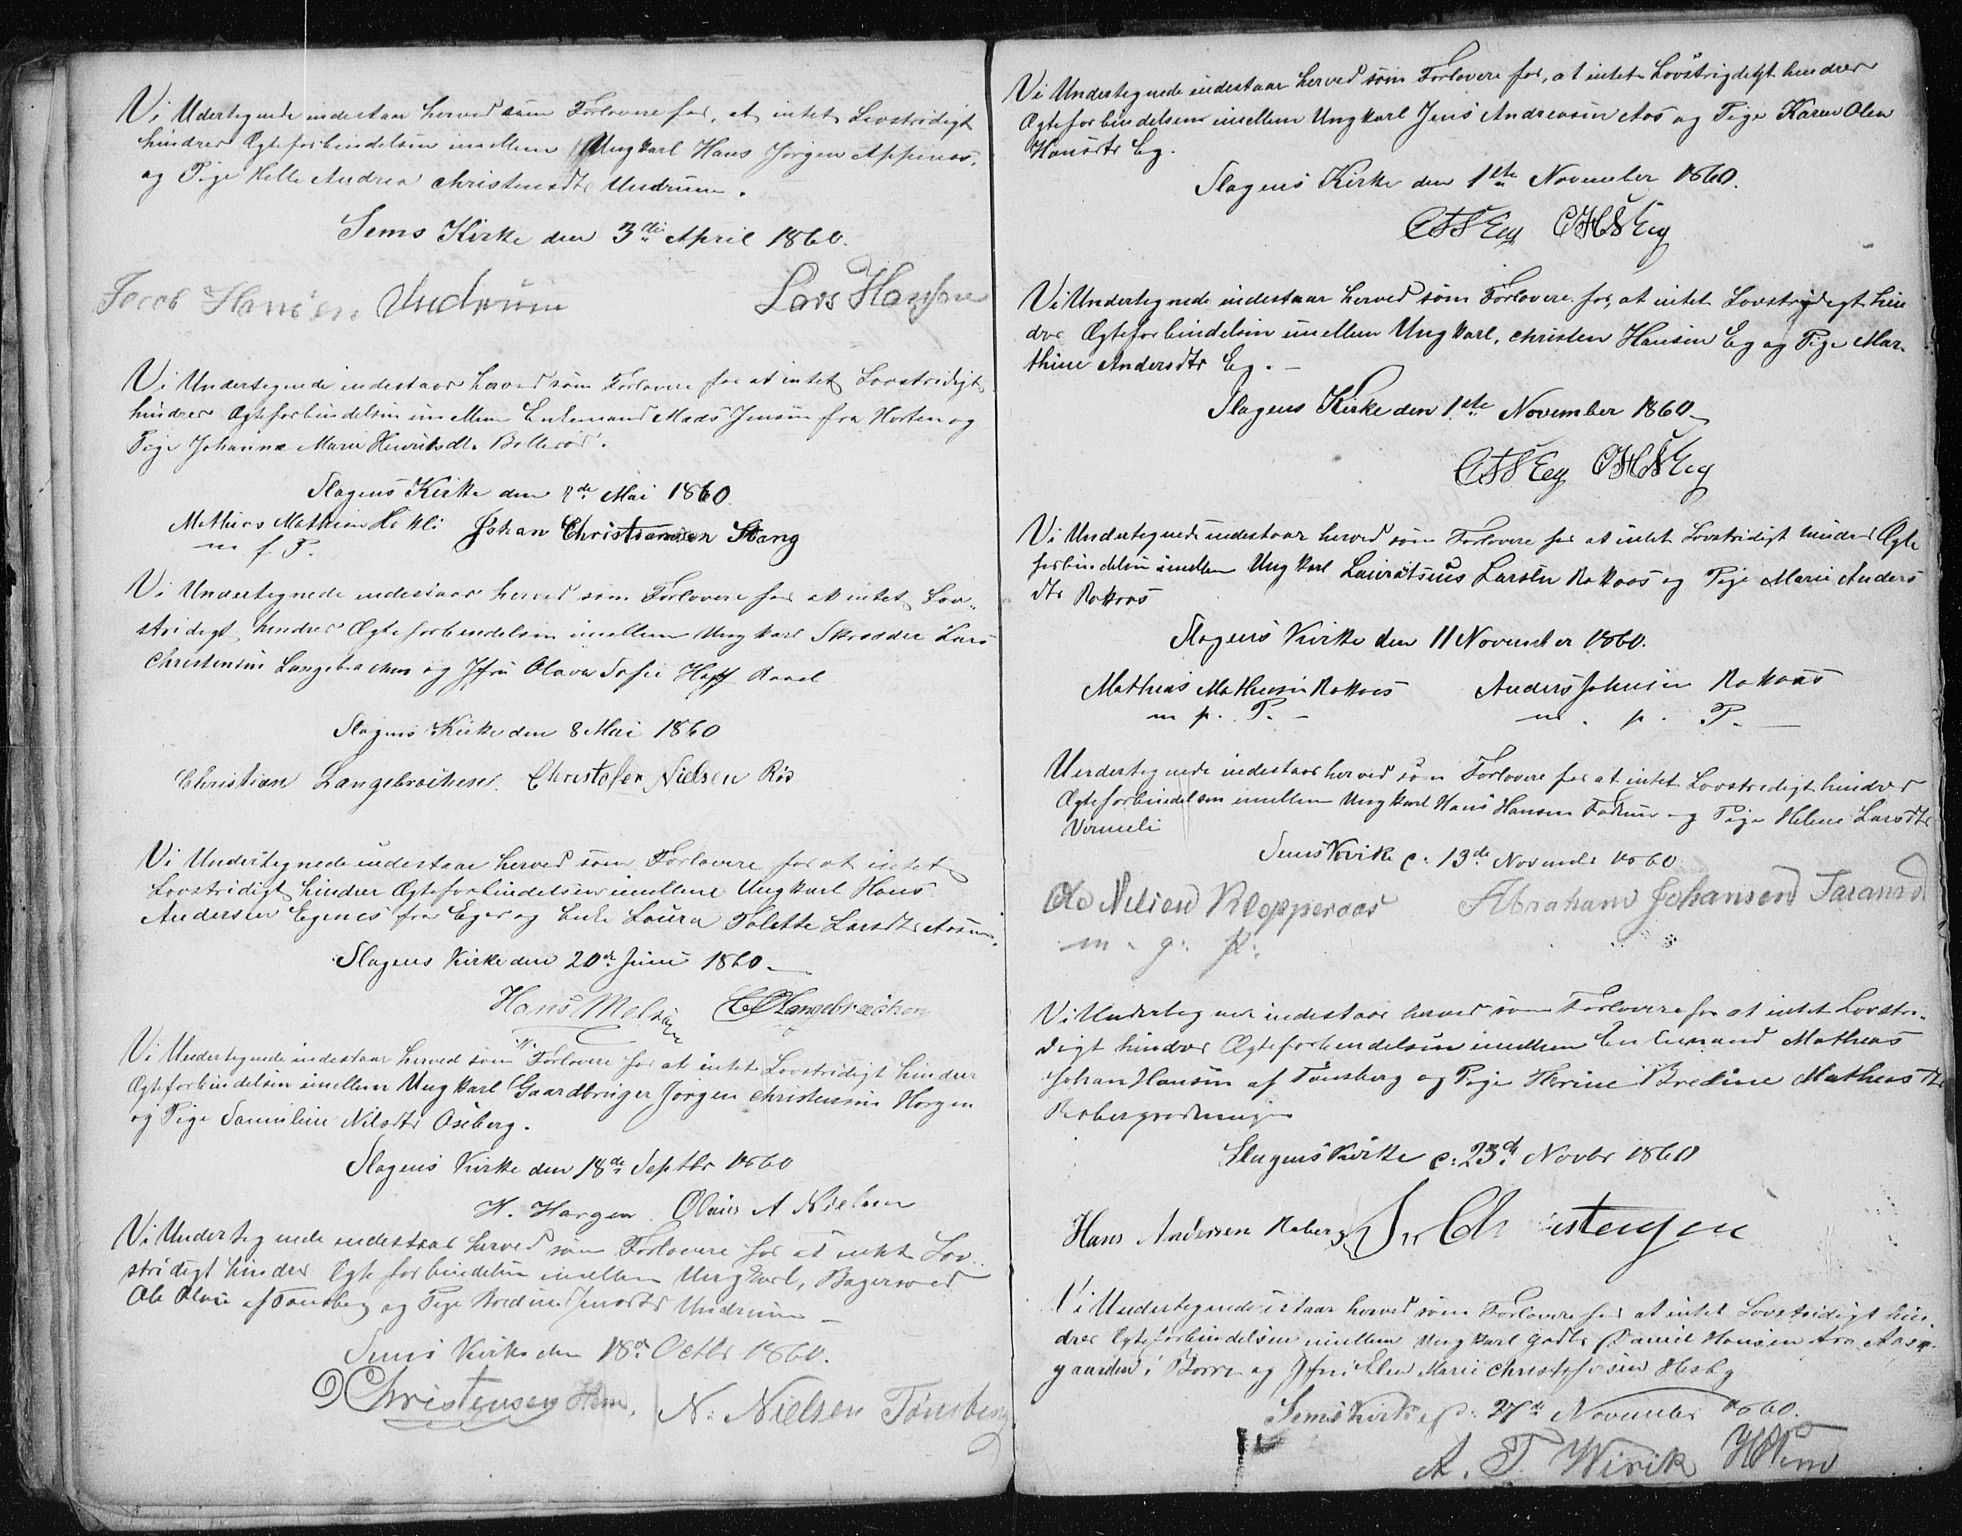 Vi Udertegnede indestaar herved som Forlovere for, at intet Lovstridigt
hindrer Ægteforbindelsen imellem Ungkarl Hans Jørgen Appenæs,
og Pige Helle Andrea Christensdtr Undrum.
Sems Kirke den 3die April 1860.
Jacob Hansen Undrum Lars Hansen
Vi Undertegnede indestaar herved som Forlovere for at intet Lovstridigt
hindrer Ægteforbindelsen imellem Enkemand Mads Jensen fra Horten og
Pige Johanne Marie Henriksdtr Bollerød.
Slagens Kirke den 2de Mai 1860.
Mathias Mathisen Johan Christiansen Stang
m f P.
Vi Undertegnede indestaar herved som Forlovere for at intet Lov-
stridigt hindrer Ægteforbindelsen imellem Ungkarl Skrædder Lars
Christensen Langebrækken og Jfru Olava Sofie Hoff Raael
Slagens Kirke den 8 Mai 1860
Christian Langebrækken. Christofer Nielsen Rød
Vi Undertegnede indestaar herved som Forlovere for at intet
Lovstridigt hindrer Ægteforbindelsen imellem Ungkarl Hans
Andersen Egenes fra Eger og Enke Laura Tolette Larsdtr Aasum.
Slagens Kirke den 20de Juni 1860
Hans Melsom Langebrækken
Vi Undertegnede indestaar herved som Forlovere for at intet Lovstridigt hindrer
Ægteforbindelsen imellem Ungkarl Gaardbruger Jørgen Christensen Horgen
og Pige Samuline Nilsdtr Oseberg.
Slagens Kirke den 18de Septbr 1860
H. Horgen Olaus A Nielsen
Vi Undertegnede indestaar herved som Forlovere for at intet Lov-
stridigt hindrer Ægteforbindelsen imellem Ungkarl, Bagersvend
Ole Olsen af Tønsberg og Pige Bredine Jensdtr Undrum
Sems Kirke den 18de Octbr 1860.
Christensen Hem, N. Nielsen Tønsberg
Vi Undertegnede indestaar herved som Forlovere for, at intet Lovstrigdigt hindrer
Ægteforbindelsen imellem Ungkarl Jens Andreasen Aas og Pige Karen Olea
Hansdtr Eg.
Slagens Kirke den 1ste November 1860.
CASEeg CHSEeg
Vi Undertegnede indestaar herved som Forlovere for, at intet Lovstrigdigt hin
drer Ægteforbindelsen imellem Ungkarl, Christen Hansen Eg og Pige Mar-
thine Andersdtr Eg.
Slagens Kirke den 1ste November 1860
CASEeg CHSEeg
Vi Undertegnede indestaar herved som Forlovere for at intet Lovstridigt hindrer Ægte
forbindelsen imellem Ungkarl Lauratsius Larsen Rakaas og Pige Marie Anders
dtr Rakaas
Slagens Kirke den 11 November 1860.
Mathias Mathisen Rakaas Anders Johnsen Rakaas
m p. P. m. p. P.
Undertegnede indestaar herved som Forlovere for at intet Lovstridigt hindrer
Ægteforbindelsen imellem Ungkarl Hans Hansen Fadum og Pige Helene Larsdtr
Vermeli
Sems Kirke d. 13de November 1860.
Ole Nilsen Klopperaas Abraham Johansen
m. g. p.
Vi Undertegnede indestaar herved som Forlovere for at intet Lovstri-
digt hindrer Ægteforbindelsen imellem Enkemand Mathias
Johan Hansen af Tønsberg og Pige Herine Bredine Mathiasdtr
Slagens Kirke d. 23de Novbr 1860
Hans Andersen Roberg Christensen
Vi Undertegnede istaar herved som Forlovere for at intet Lovstridigt hin-
drer Ægteforbindelsen imellem Ungkarl Gadbr Daniel Hansen fra Aasg-
gaarden i Borre og Jfru Elen Marie Christofersen Hesby
Sems Kirke d. 27de November 1860.
A. T. Wirik